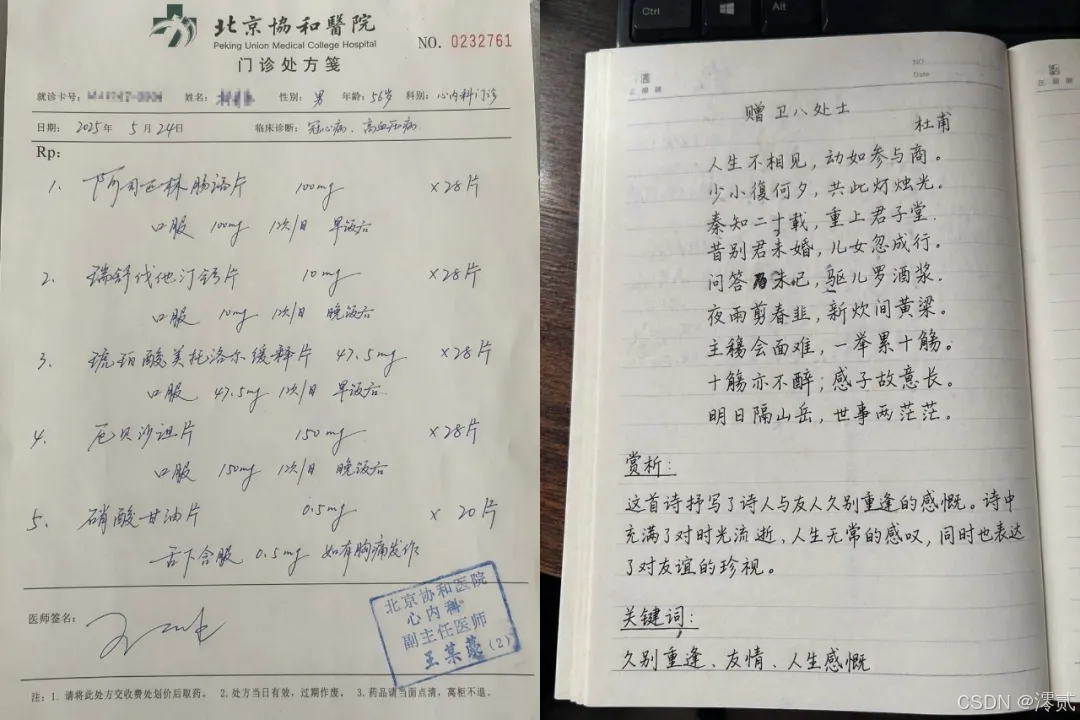 北京協和醫院
Peking Union Medical College Hospital
NO. 0232761
门诊处方笺
就诊卡号：
姓名：
性别：男 年龄：56岁 科别：心内科门诊
日期：2025年5月24日 临床诊断：冠心病、高血压病
Rp:
1. 阿司匹林肠溶片 100mg ×28片
口服 100mg 1次/日 早饭后
2. 瑞舒伐他汀钙片 10mg ×28片
口服 10mg 1次/日 晚饭后
3. 琥珀酸美托洛尔缓释片 47.5mg ×28片
口服 47.5mg 1次/日 早饭后
4. 厄贝沙坦片 150mg ×28片
口服 150mg 1次/日 晚饭后
5. 硝酸甘油片 0.5mg ×20片
舌下含服 0.5mg 如有胸痛发作
医师签名：
北京协和医院
心内科
副主任医师
王某 (2)
注：1. 请将此处方交收费处划价后取药。 2. 处方当日有效，过期作废。 3. 药品请当面点清，离柜不退。
Ctrl
Alt
NO
Date
赠卫八处士
杜甫
人生不相见，动如参与商。
少小復何夕，共此灯烛光。
秦知二十载，重上君子堂.
昔别君未婚，儿女忽成行。
问答乃未已，驱儿罗酒浆.
夜雨剪春韭，新炊间黄梁。
主稱会面难，一举累十觞。
十觞亦不醉；感子故意长。
明日隔山岳，世事两茫茫。
赏析：
这首诗抒写了诗人与友人久别重逢的感慨。诗中
充满了对时光流逝、人生无常的感叹，同时也表达
了对友谊的珍视。
关键词：
久别重逢、友情、人生感慨
CSDN @澪贰